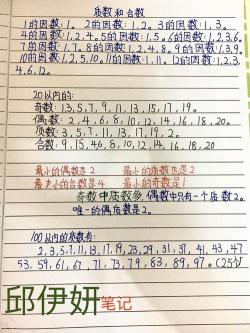 质数和合数
1的因数:1。2的因数:1,2。3的因数:1,3。
4的因数:1,2,4。5的因数:1,5。6的因数:1,2,3,6。
7的因数:1,7。8的因数:1,2,4,8。9的因数:1,3,9。
10的因数:1,2,5,10。11的因数:1,11。12的因数:1,2,3,
4,6,12。
20以内的:
奇数:1,3,5,7,9,11,13,15,17,19。
偶数:2,4,6,8,10,12,14,16,18,20。
质数:3,5,7,11,13,17,19,2。
合数:9,15,4,6,8,10,12,14,16,18,20
最小的偶数是2 最小的质数也是2
最小的合数是4 最小的奇数是1
奇数中质数多,偶数中只有一个质数2。
唯一的偶质数是2。
100以内的质数有:
2,3,5,7,11,13,17,19,23,29,31,37,41,43,47
53,59,61,67,71,73,79,83,89,97。(25个)
邱伊妍笔记